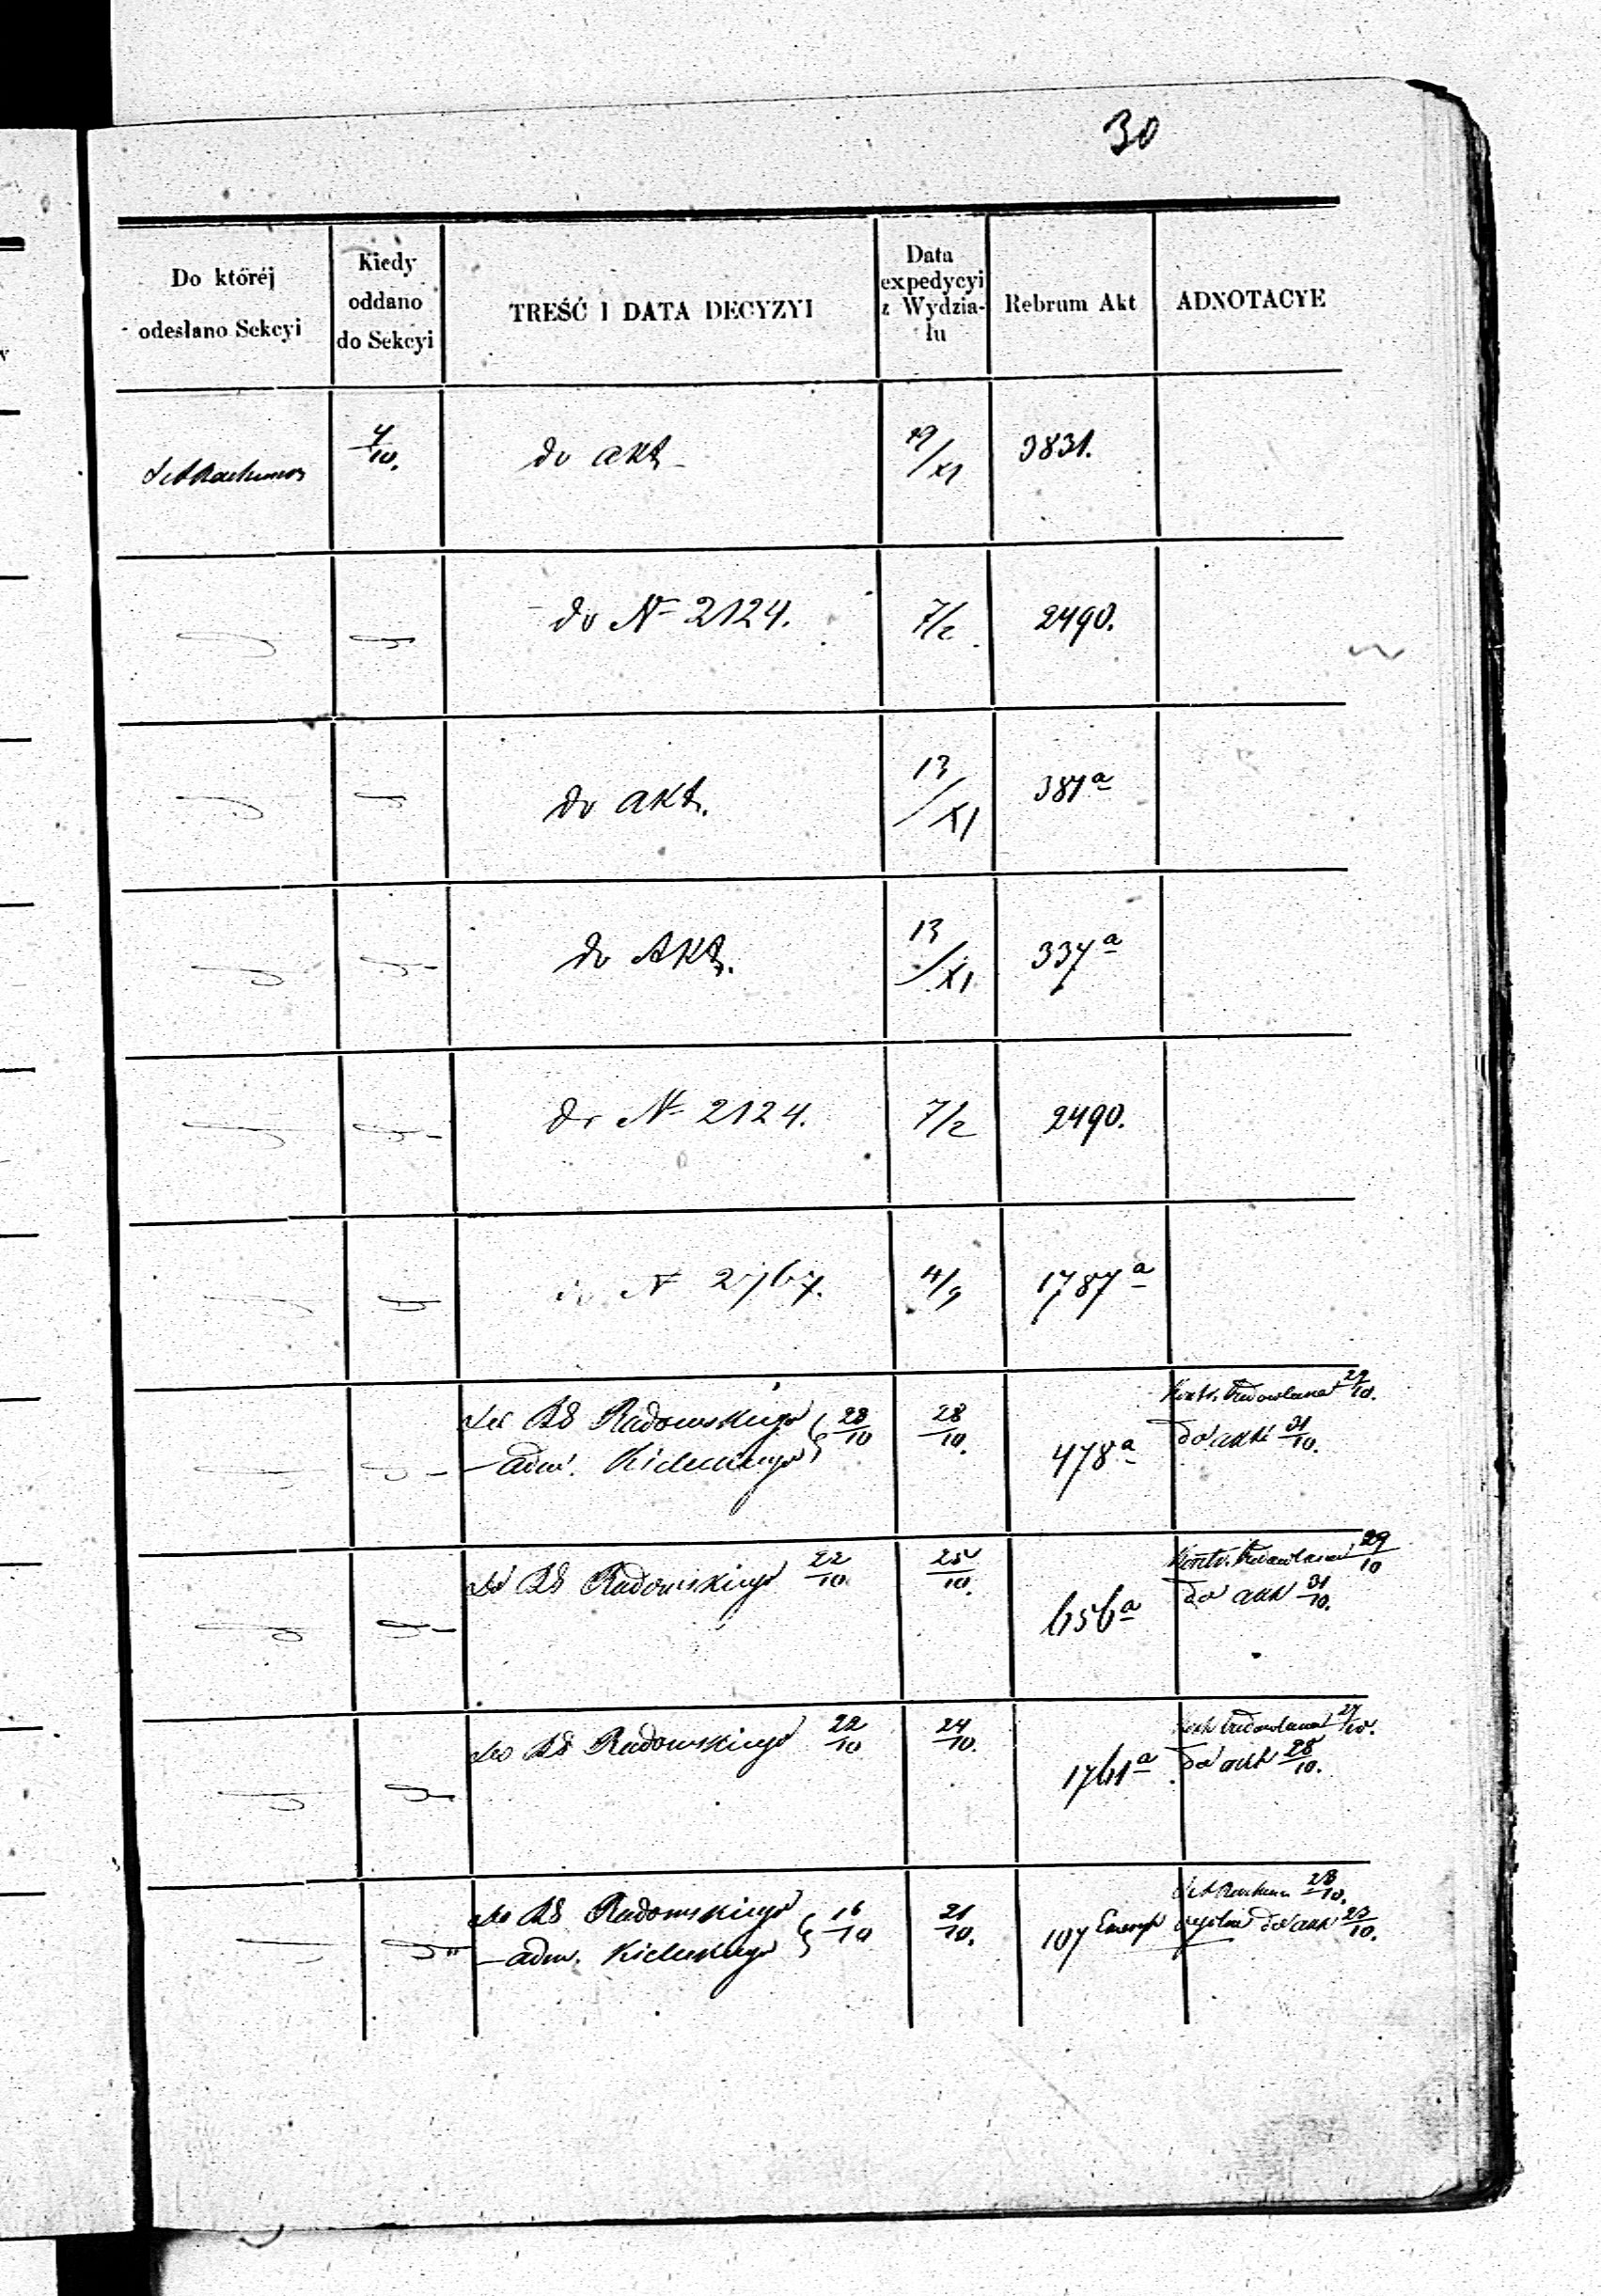 30
Do któréj odesłano Sekcyi | Kiedy oddano do Sekcyi | TREŚĆ I DATA DECYZYI | Data expedycyi z Wydzia-łu | Rebrum Akt | ADNOTACYE
4/10. | do akt | 19/XI | 3831.
do N 2124. | 7/2 | 2490.
do akt. | 13/XI | 387a
do Akt. | 13/XI | 337a
do N 2124. | 7/2 | 2490.
N 2767. | 4/9 | 1787a
do RG Radomskiego 28/10 | 28/10. | 478a | 29/10.
adm. Kieleckiego | do akt 31/10.
do RG Radomskiego 22/10 | 25/10. | 656a | 29/10
do akt 31/10.
do RG Radomskiego 22/10 | 24/10. | 1761a | 27/10.
do akt 28/10.
do RG Radomskiego 16/10 | 21/10. | 107 Emeryt | 28/10.
adm. Kieleckiego | do akt 23/10.